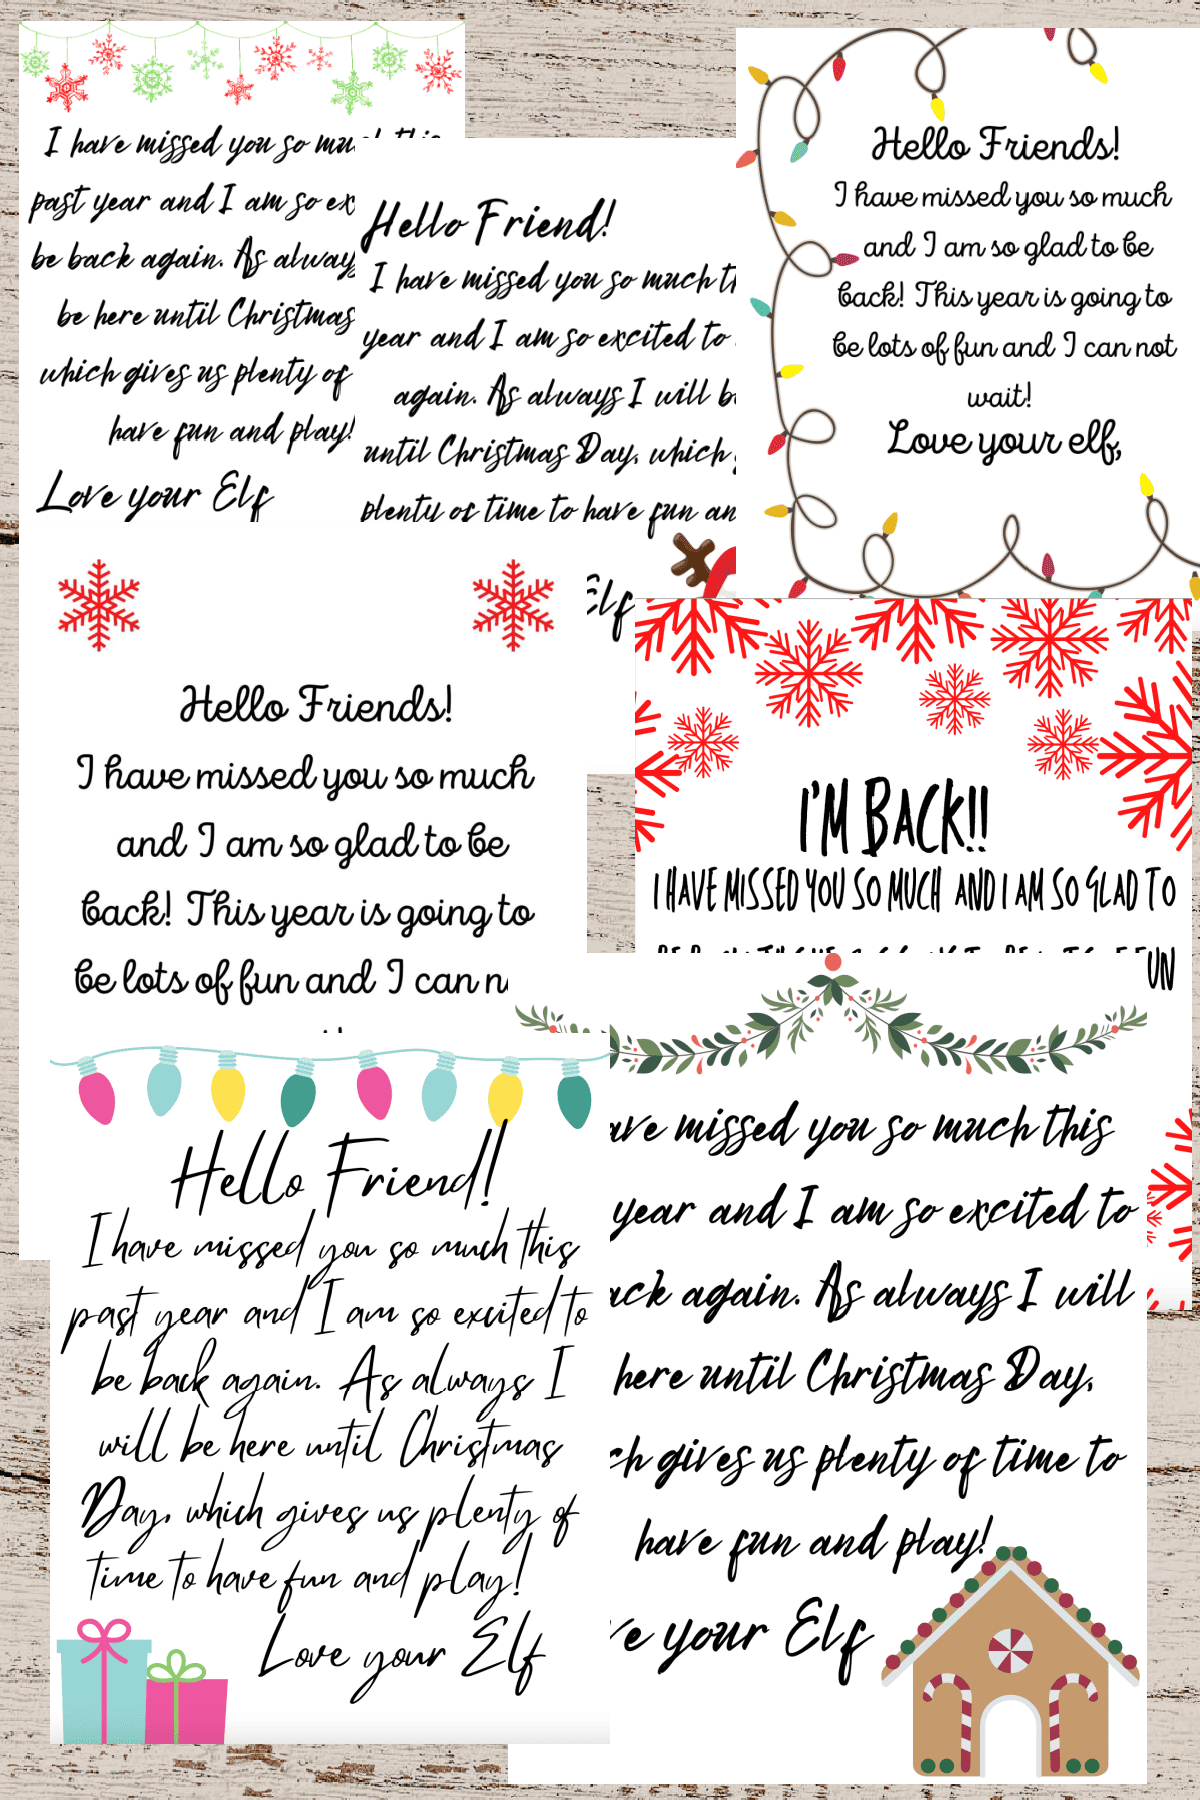 I have missed you so
past year and I am so
be back again. As
be here until Christmas
which gives us plenty of
have fun and play!
Love your Elf
Hello Friend!
I have missed you so much
year and I am so excited to
again. As always I will
until Christmas Day, which
plenty of time to have fun
Elf
Hello Friends!
I have missed you so much
and I am so glad to be
back! This year is going to
be lots of fun and I can not
wait!
Love your elf,
Hello Friends!
I have missed you so much
and I am so glad to be
back! This year is going to
be lots of fun and I can
I'M BACK!!
I HAVE MISSED YOU SO MUCH AND I AM SO GLAD TO
Hello Friend!
I have missed you so much this
past year and I am so excited to
be back again. As always I
will be here until Christmas
Day, which gives us plenty of
time to have fun and play!
Love your Elf
missed you so much this
year and I am so excited to
again. As always I will
here until Christmas Day,
gives us plenty of time to
have fun and play!
your Elf